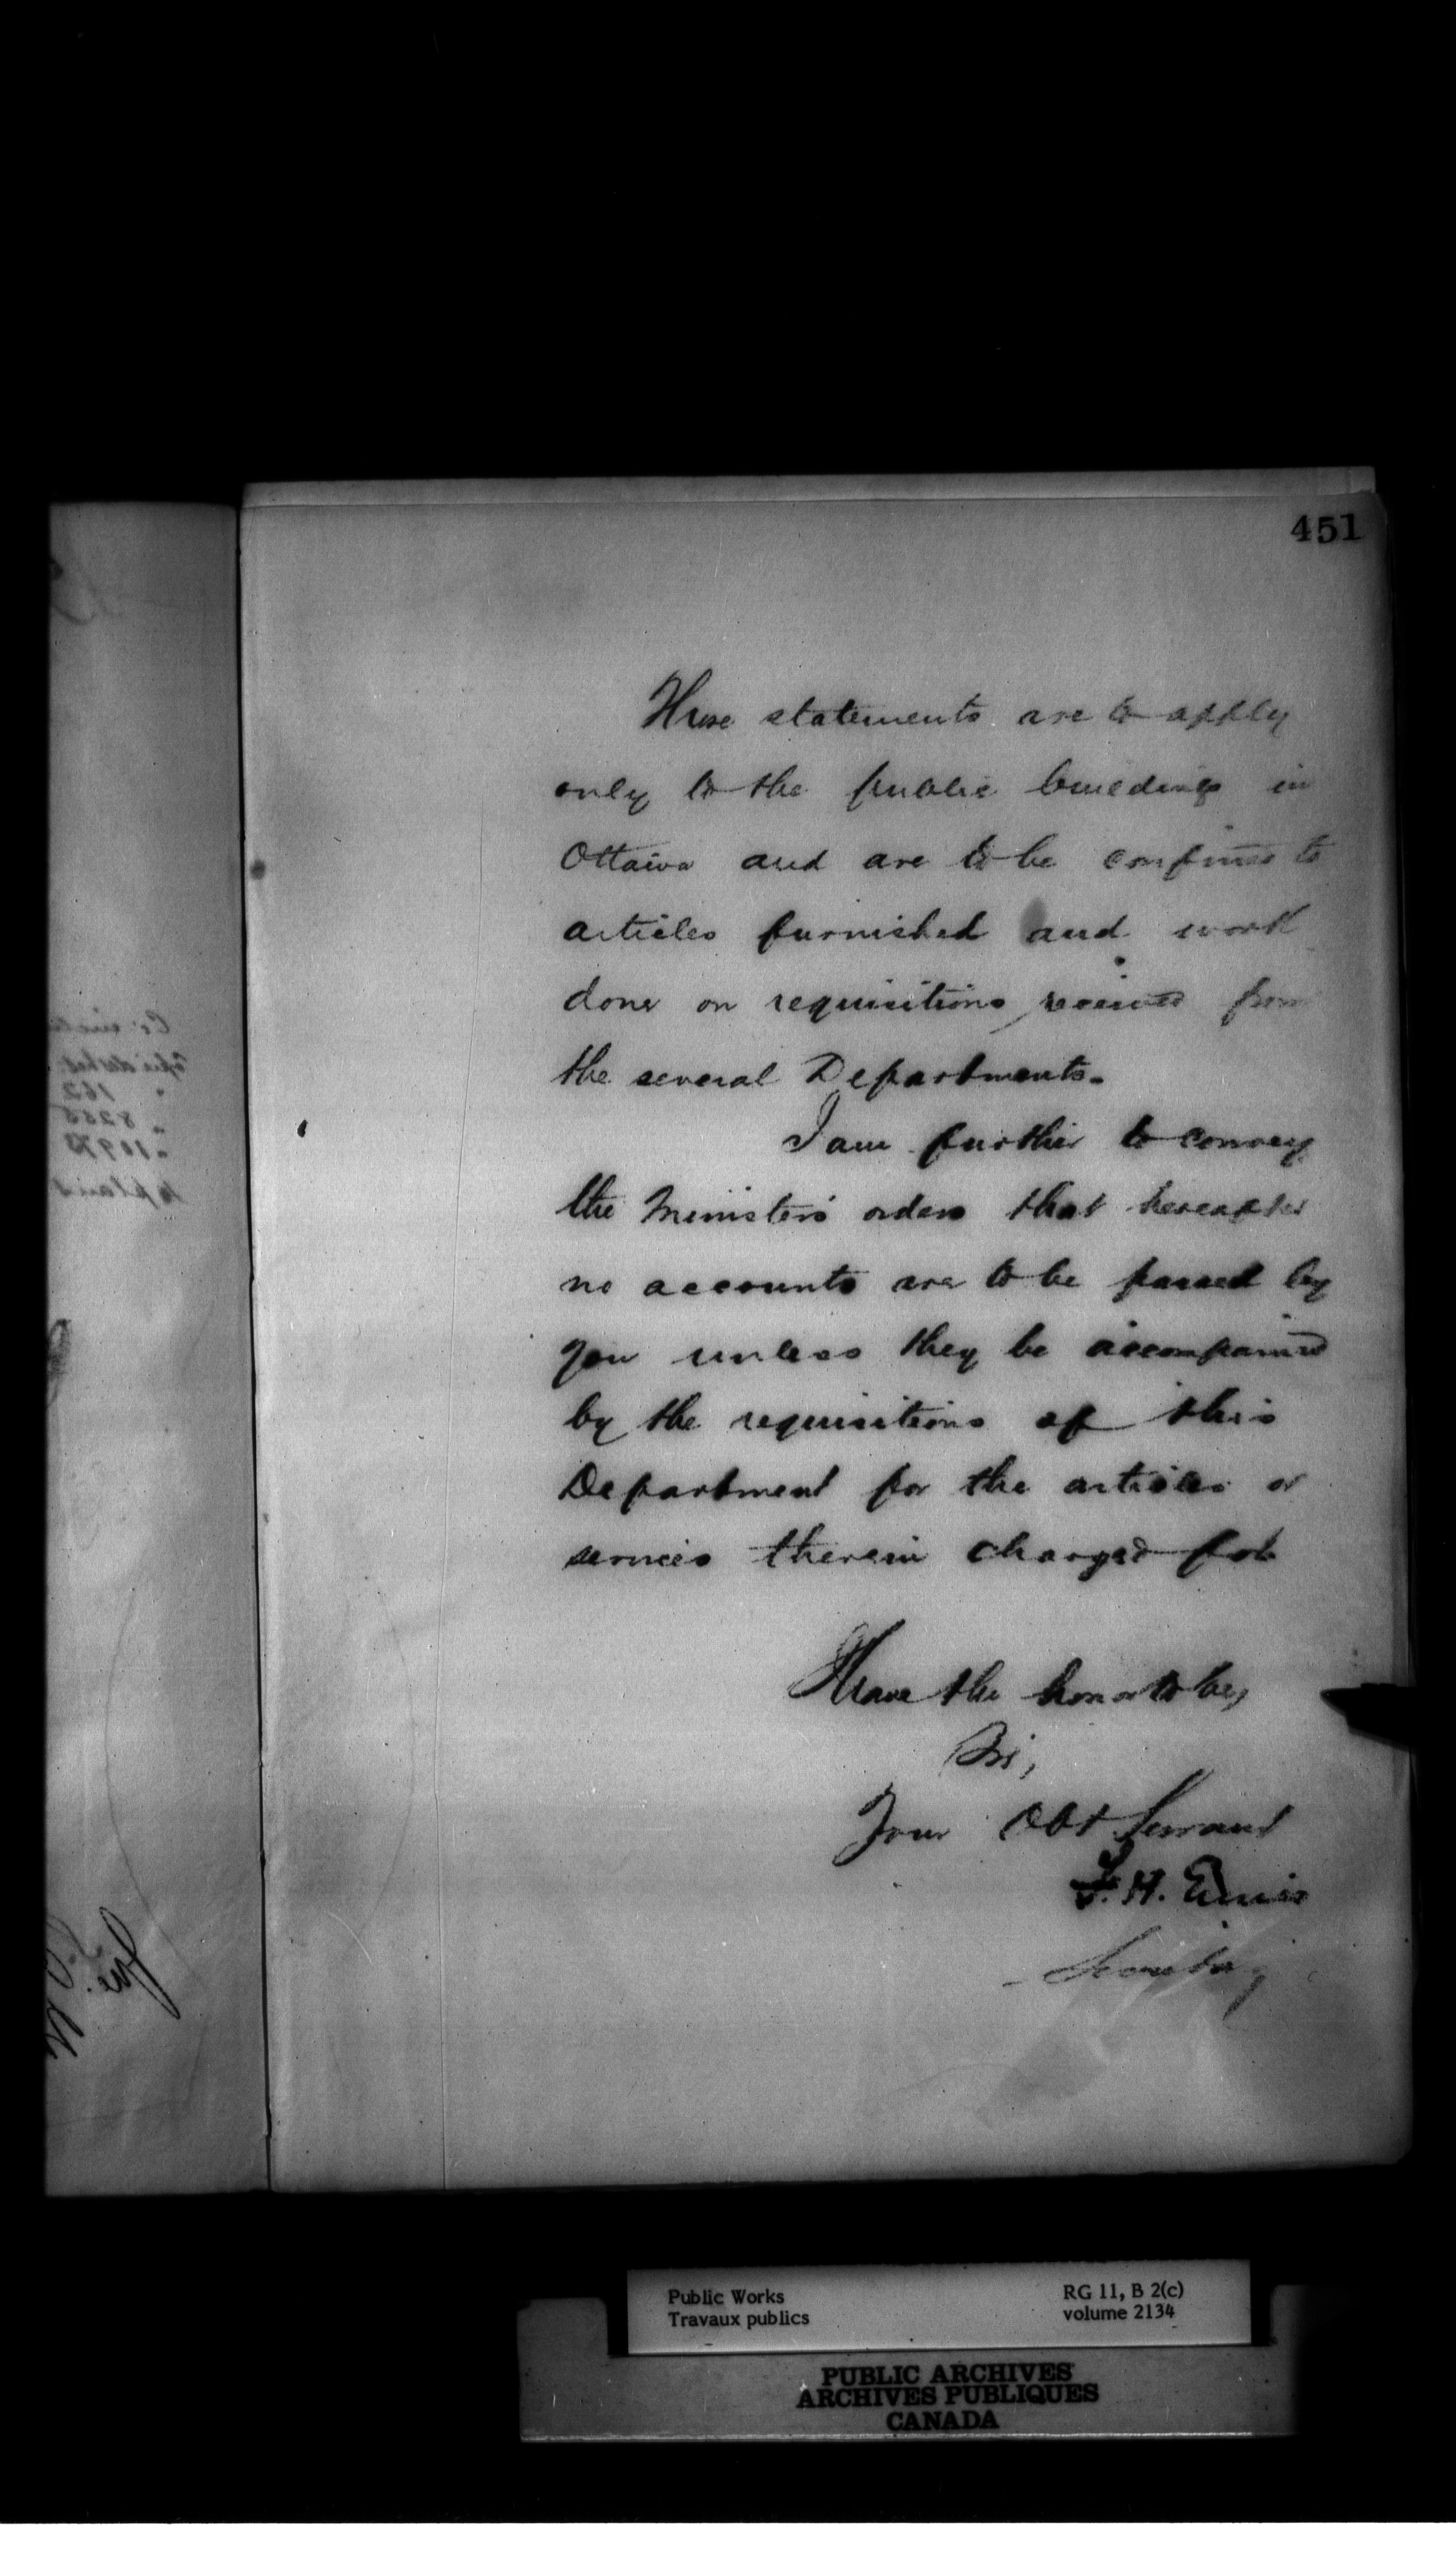 451
These statements are to apply
only to the public buildings in
Ottawa and are to be confined to
articles furnished and work
done on requisitions received from
the several Departments.
I am further to convey
the Ministers' orders that hereafter
no accounts are to be passed by
you unless they be accompanied
by the requisitions of this
Department for the articles or
services therein charged for
I have the honor to be,
Sir,
Your Obt Servant
F. H. Ennis
Secretary
Public Works
Travaux publics
RG 11, B 2(c)
volume 2134
PUBLIC ARCHIVES
ARCHIVES PUBLIQUES
CANADA